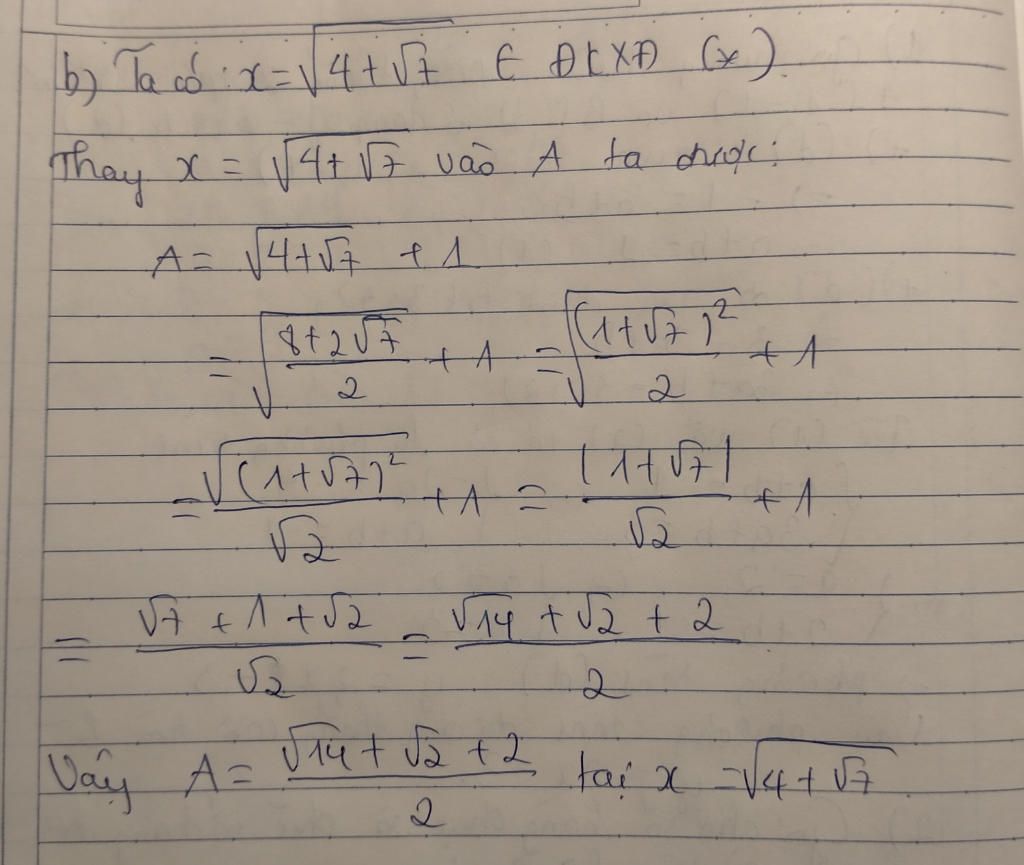 b) Ta có: x = √(4+√7) ∈ ĐKXĐ (*)
Thay x = √(4+√7) vào A ta được:
A = √(4+√7) + 1
= √((8+2√7)/2) + 1 = √((1+√7)²/2) + 1
= √((1+√7)²)/√2 + 1 = |1+√7|/√2 + 1
= (√7 + 1 + √2)/√2 = (√14 + √2 + 2)/2
Vậy A = (√14 + √2 + 2)/2 tại x = √(4+√7)